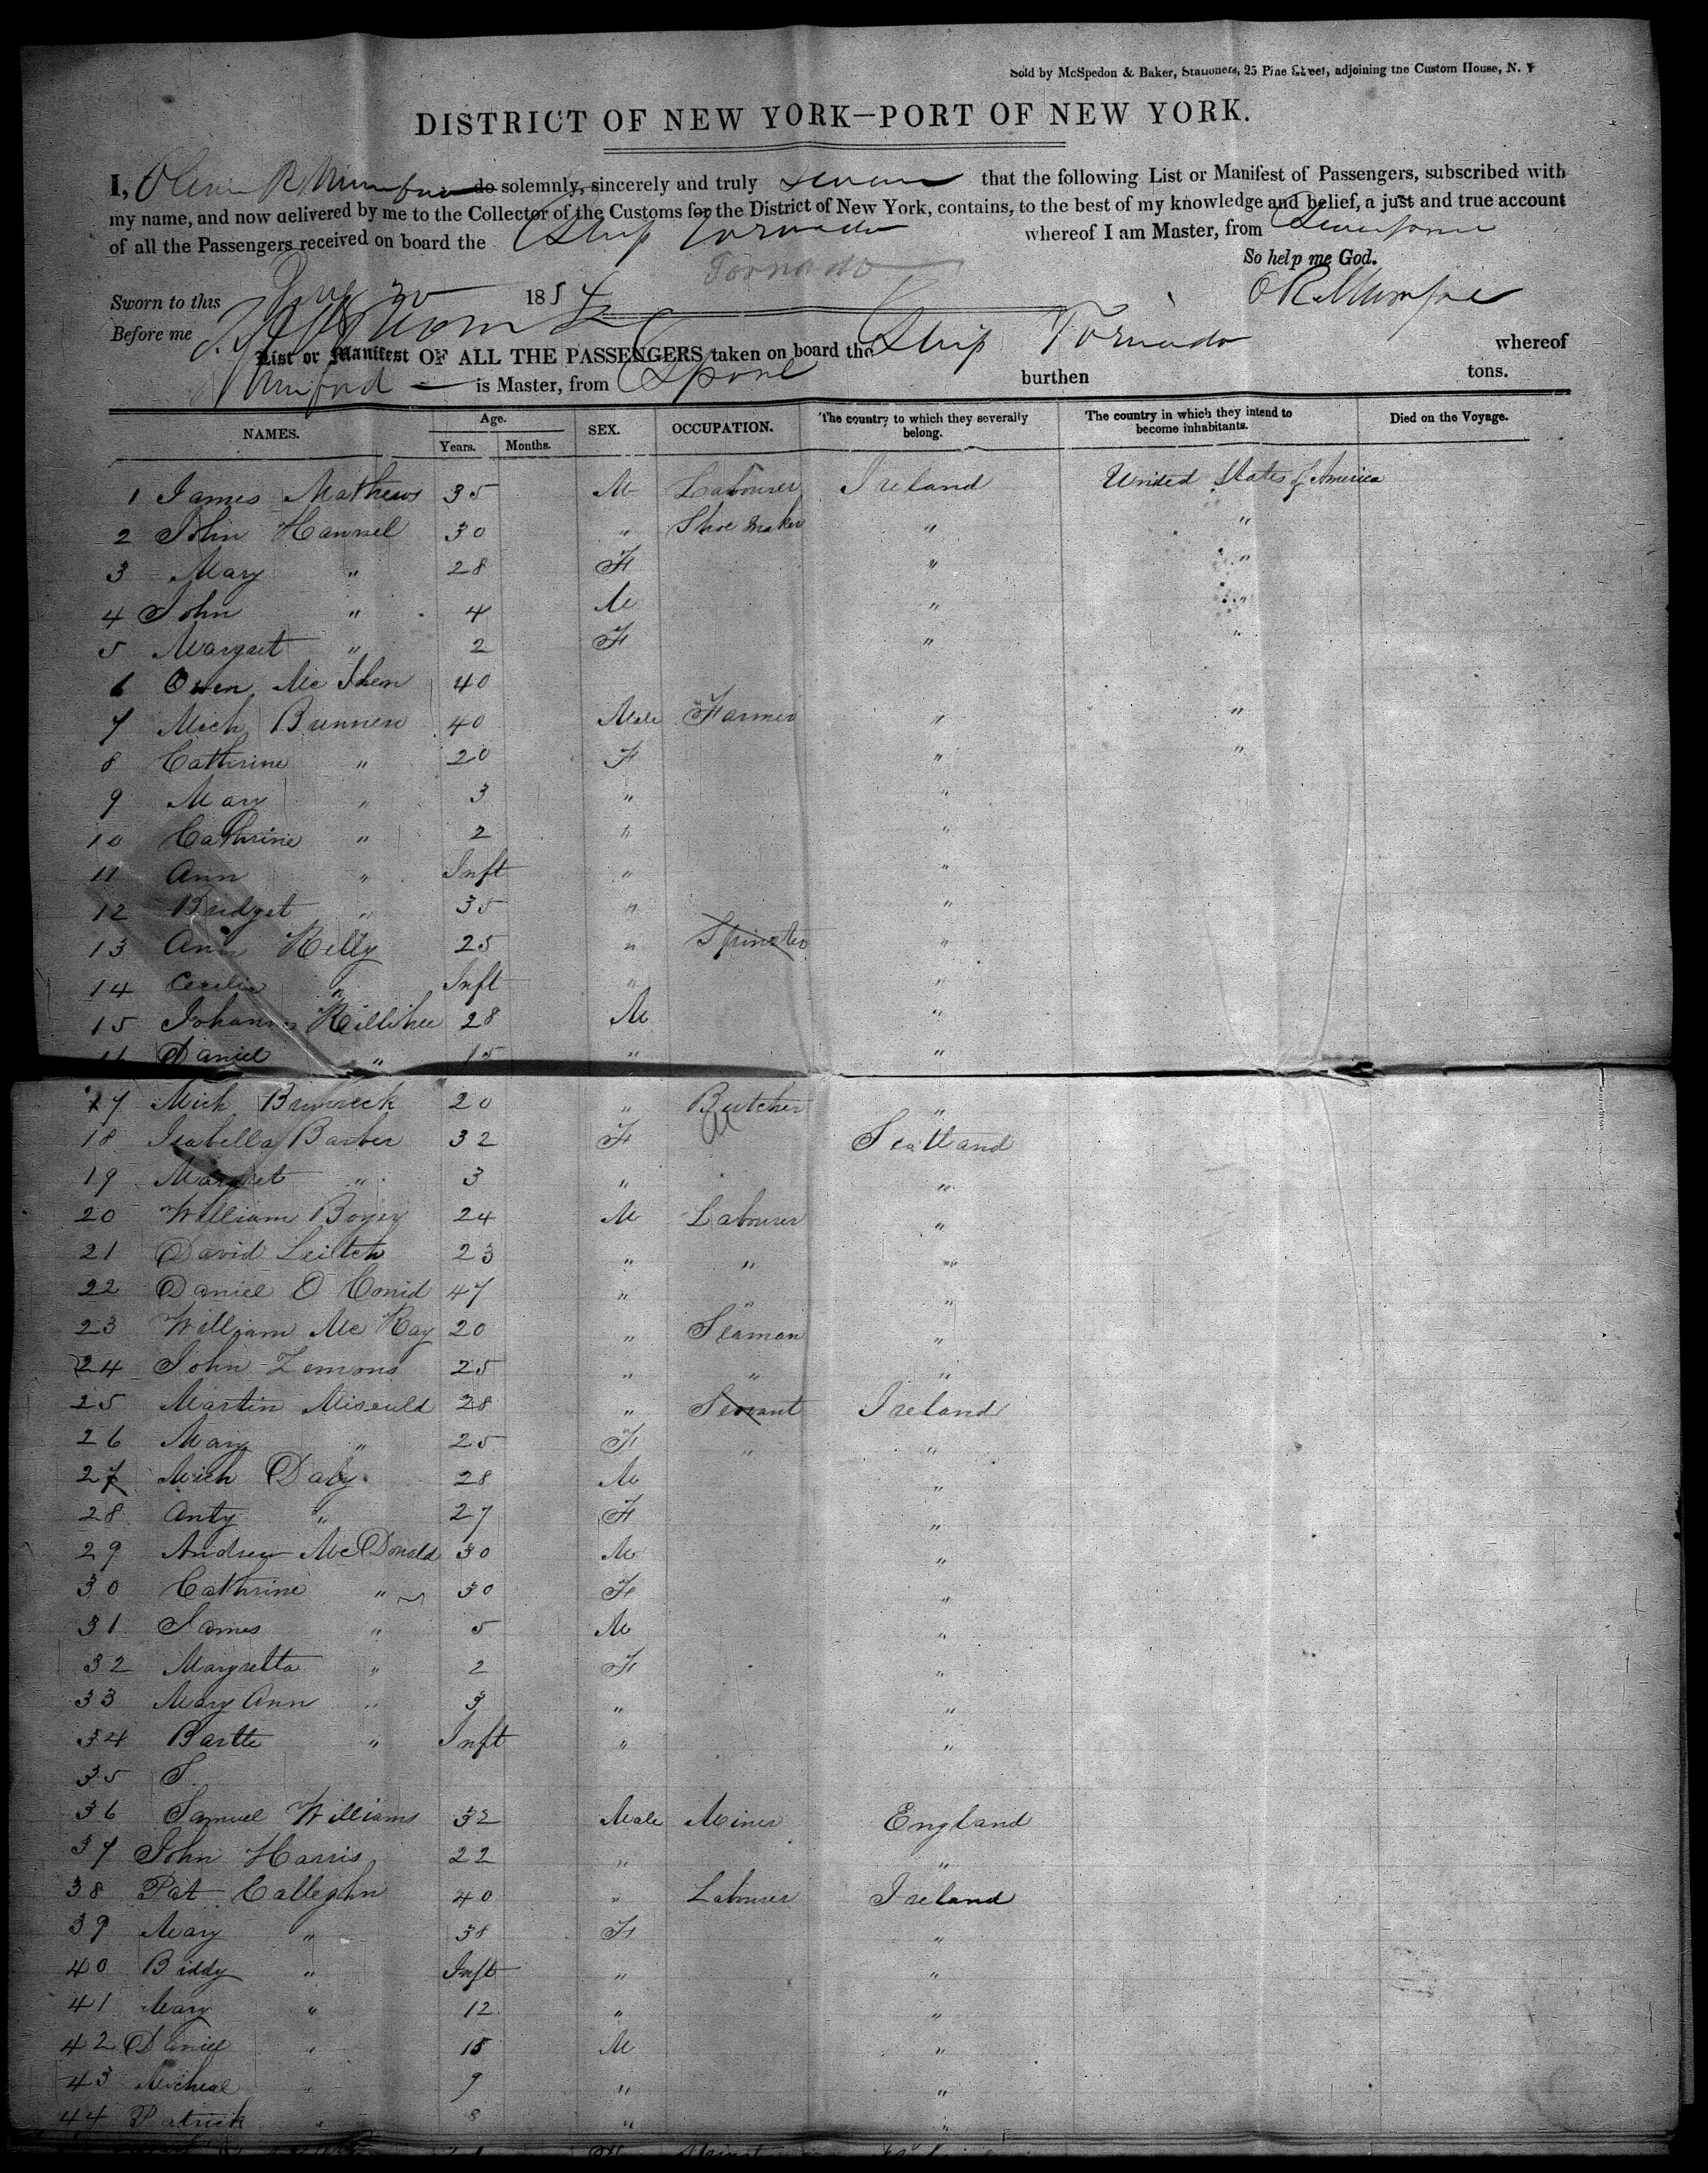 Sold by McSpedon & Baker, Stationers, 25 Pine Street, adjoining the Custom House, N. Y
DISTRICT OF NEW YORK—PORT OF NEW YORK.
I, R Mumford do solemnly, sincerely and truly swear that the following List or Manifest of Passengers, subscribed with
my name, and now delivered by me to the Collector of the Customs for the District of New York, contains, to the best of my knowledge and belief, a just and true account
of all the Passengers received on board the Ship Tornado whereof I am Master, from Liverpool
Tornado
So help me God.
Sworn to this 30 1854 O R Mumford
Before me
List or Manifest OF ALL THE PASSENGERS taken on board the Ship Tornado whereof
Mumford is Master, from Lpool burthen tons.
NAMES. Age. Years. Months. SEX. OCCUPATION. The country to which they severally belong. The country in which they intend to become inhabitants. Died on the Voyage.
1 James Mathews 35 M Labourer Ireland United States of America
2 John Hannel 30 " Shoe maker " "
3 Mary " 28 F " "
4 John " 4 M " "
5 Margret " 2 F " "
6 Owen Mc 40
7 Mich Brunnen 40 Male Farmer " "
8 Cathrine " 20 F " "
9 Mary " 3 " "
10 Cathrine " 2 " "
11 Ann " Inft " "
12 Bridget " 35 " "
13 Ann Kelly 25 " Spinster "
14 Cecilia " Inft " "
15 Johanna Killihee 28 M "
16 Daniel " 15 " "
17 Mich 20 " Butcher "
18 Isabella Barber 32 F Scotland
19 Margret " 3 " "
20 William Boyer 24 M Labourer "
21 David Leitch 23 " " "
22 Daniel O Conid 47 " " "
23 William Mc Kay 20 " Seaman "
24 John Lemons 25 " " "
25 Martin 28 " Servant Ireland
26 Mary " 25 F " "
27 Mich Daly 28 M "
28 Anty " 27 F "
29 Andrew Mc Donald 30 M "
30 Cathrine " 30 F "
31 James " 5 M "
32 Margretta " 2 F "
33 Mary Ann " 3 " "
34 Bartle " Inft " "
35 S
36 Samuel Williams 32 Male Miner England
37 John Harris 22 " "
38 Pat Calleghn 40 " Labourer Ireland
39 Mary " 38 F "
40 Biddy " Inft " "
41 Mary " 12 " "
42 Daniel " 15 M "
43 Micheal " 9 " "
44 Patrick " 8 " "